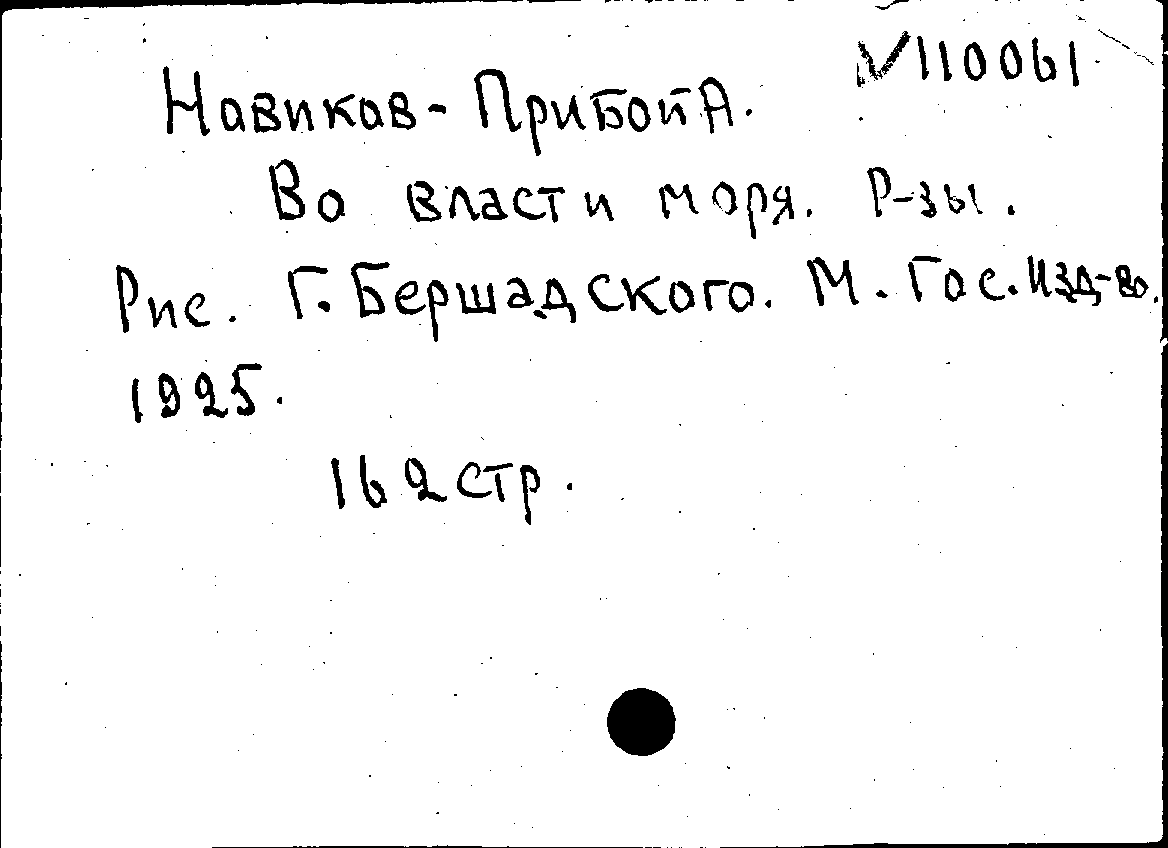 V110061
Новиков-Прибой А.
Во власти моря. Р-зы.
Рис. Г. Бершадского. М. Гос. Изд-во.
1925.
162 стр.